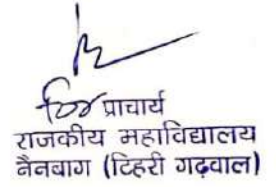 प्राचार्य
राजकीय महाविद्यालय
नैनबाग (टिहरी गढ़वाल)